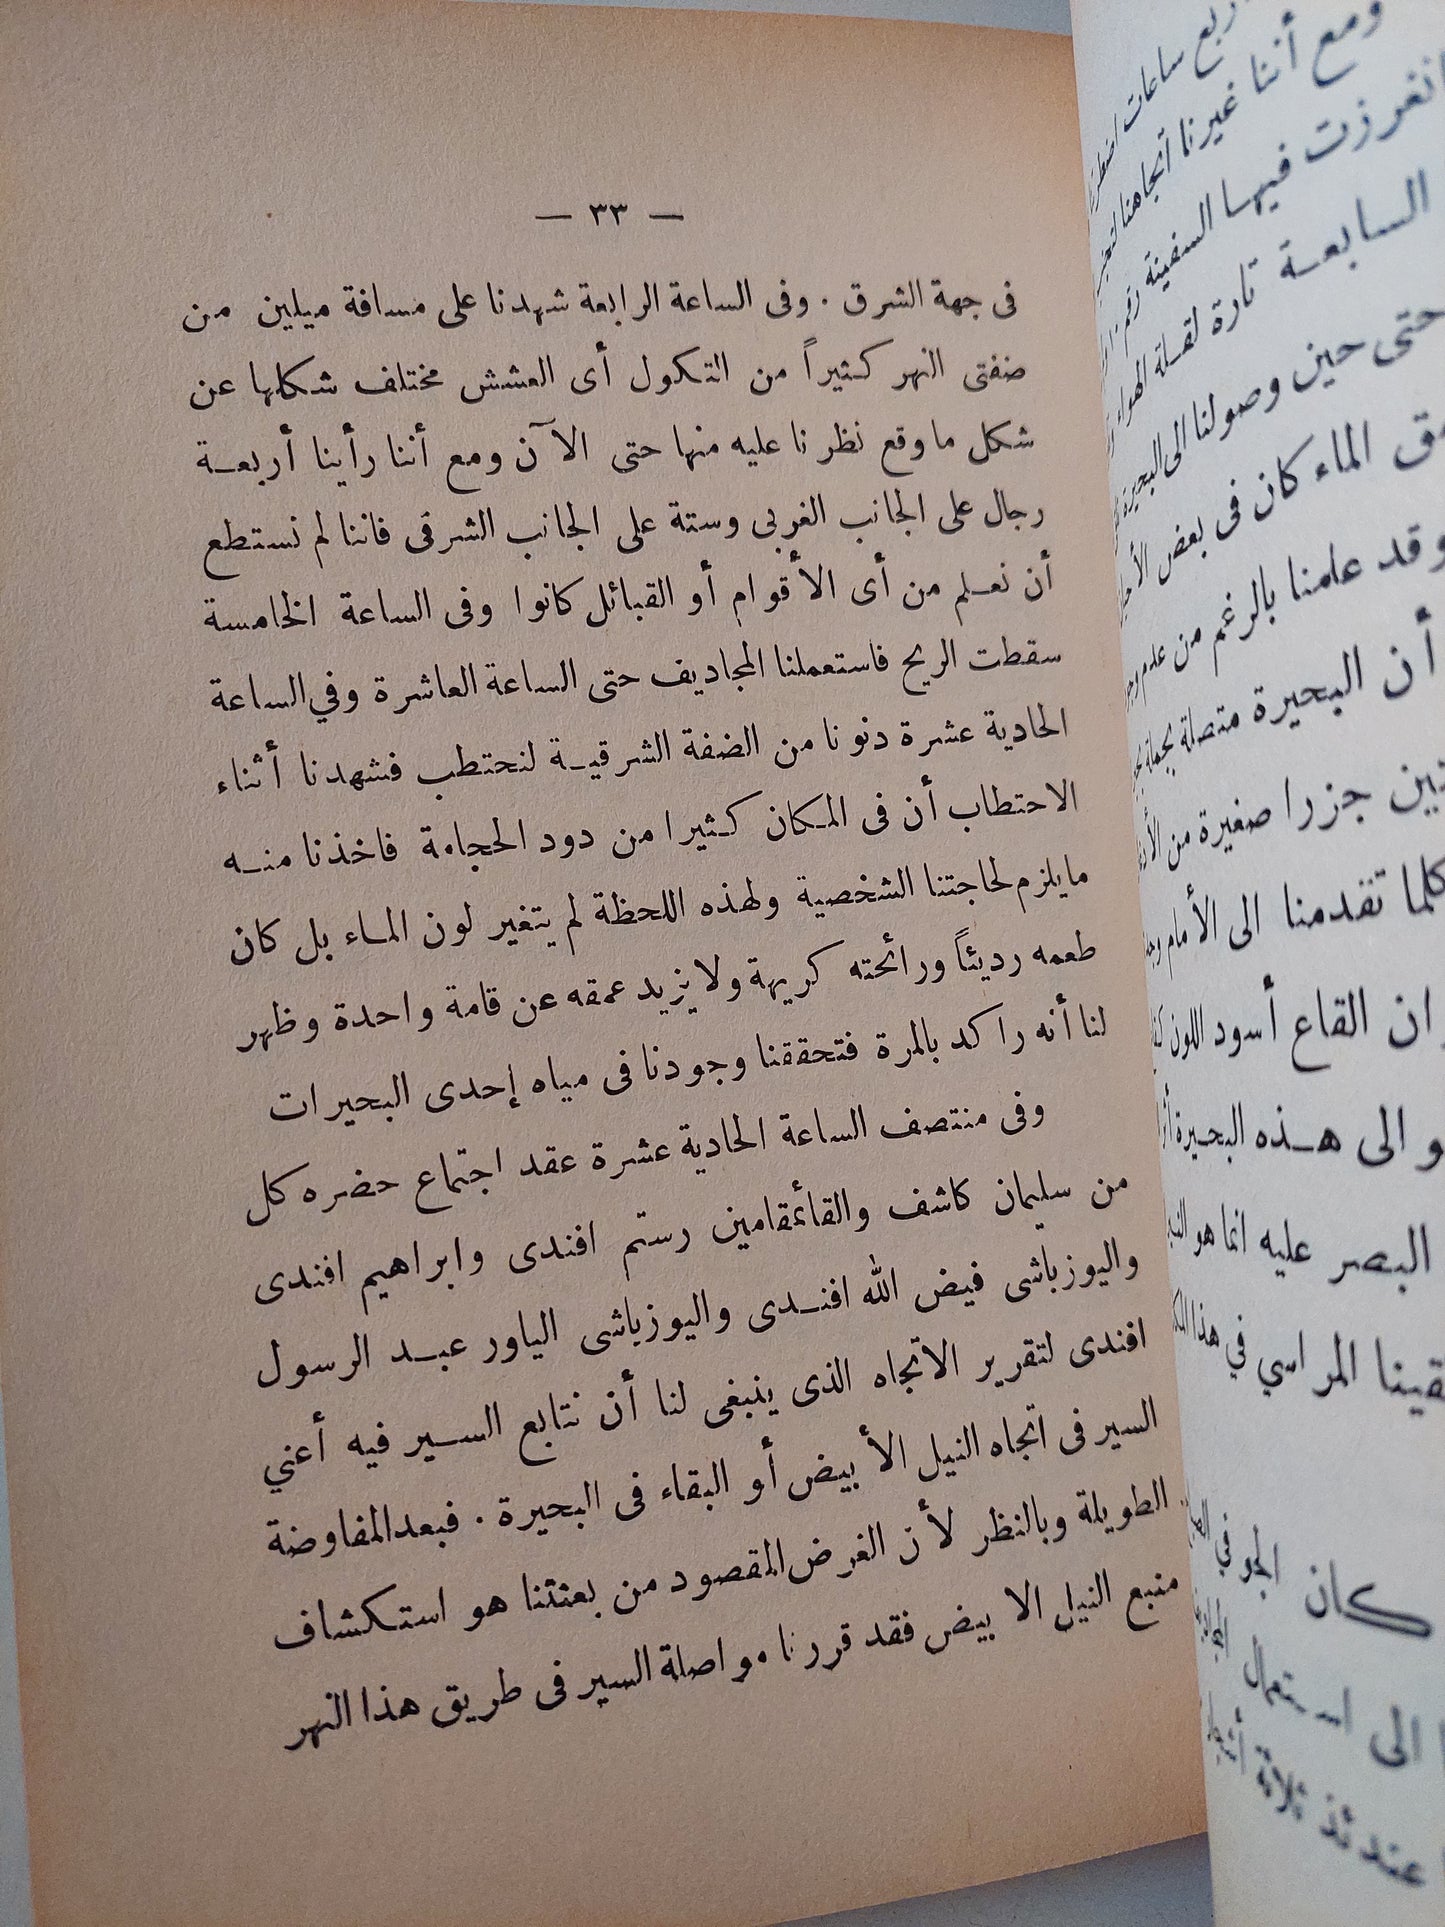 — ٣٣ —
فى جهة الشرق . وفى الساعة الرابعة شهدنا على مسافة ميلين من
ضفتى النهر كثيراً من التكول أى العشش مختلف شكلها عن
شكل ما وقع نظرنا عليه منها حتى الآن ومع أننا رأينا أربعة
رجال على الجانب الغربى وستة على الجانب الشرقى فاننا لم نستطع
أن نعلم من أى الأقوام أو القبائل كانوا وفى الساعة الخامسة
سقطت الريح فاستعملنا المجاديف حتى الساعة العاشرة وفي الساعة
الحادية عشرة دنونا من الضفة الشرقية لنحتطب فشهدنا أثناء
الاحتطاب أن فى المكان كثيرا من دود الحجامة فاخذنا منه
مايلزم لحاجتنا الشخصية ولهذه اللحظة لم يتغير لون الماء بل كان
طعمه رديئاً ورائحته كريهة ولا يزيد عمقه عن قامة واحدة وظهر
لنا أنه راكد بالمرة فتحققنا وجودنا فى مياه إحدى البحيرات
وفى منتصف الساعة الحادية عشرة عقد اجتماع حضره كل
من سليمان كاشف والقائمقامين رستم افندى وابراهيم افندى
واليوزباشى فيض الله افندى واليوزباشى الياور عبد الرسول
افندى لتقرير الاتجاه الذى ينبغى لنا أن نتابع السير فيه أعني
السير فى اتجاه النيل الأبيض أو البقاء فى البحيرة . فبعد المفاوضة
الطويلة وبالنظر لأن الغرض المقصود من بعثتنا هو استكشاف
منبع النيل الابيض فقد قررنا مواصلة السير فى طريق هذا النهر
ربع ساعات
ومع أننا غيرنا اتجاهنا
انغرزت فيها السفينة رقم
السابعة تارة لقلة الهواء
حتى حين وصولنا الى البحيرة
الماء كان فى بعض
وقد علمنا بالرغم من عدم
أن البحيرة متصلة بجملة
جزرا صغيرة من
كلما تقدمنا الى الأمام
ان القاع أسود اللون
و الى هذه البحيرة
البصر عليه انما هو
المراسي في هذا
كان الجو في
الى استعمال
عندئذ ثلاثة